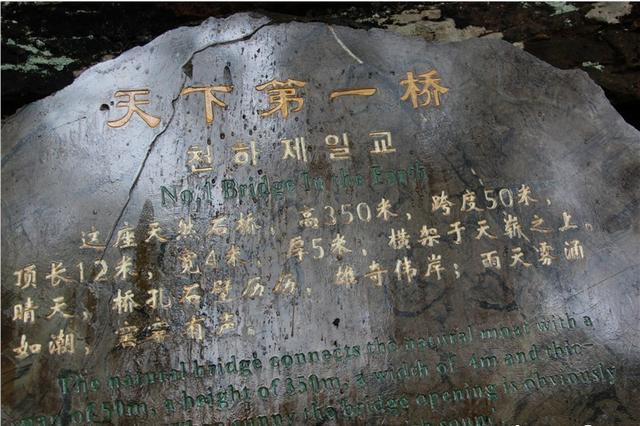 天下第一桥
천하제일교
No.1 Bridge In the Earth
这座天然石桥，高350米，跨度50米，
顶长12米，宽4米，厚5米，横架于天之上。
晴天，桥孔石壁历历，雄奇伟岸；雨天雾涌
如潮，有声。
The natural bridge connects the natural moat with a
span of 50m, a height of 350m, a width of 4m and thic-
sunny the bridge opening is obviously